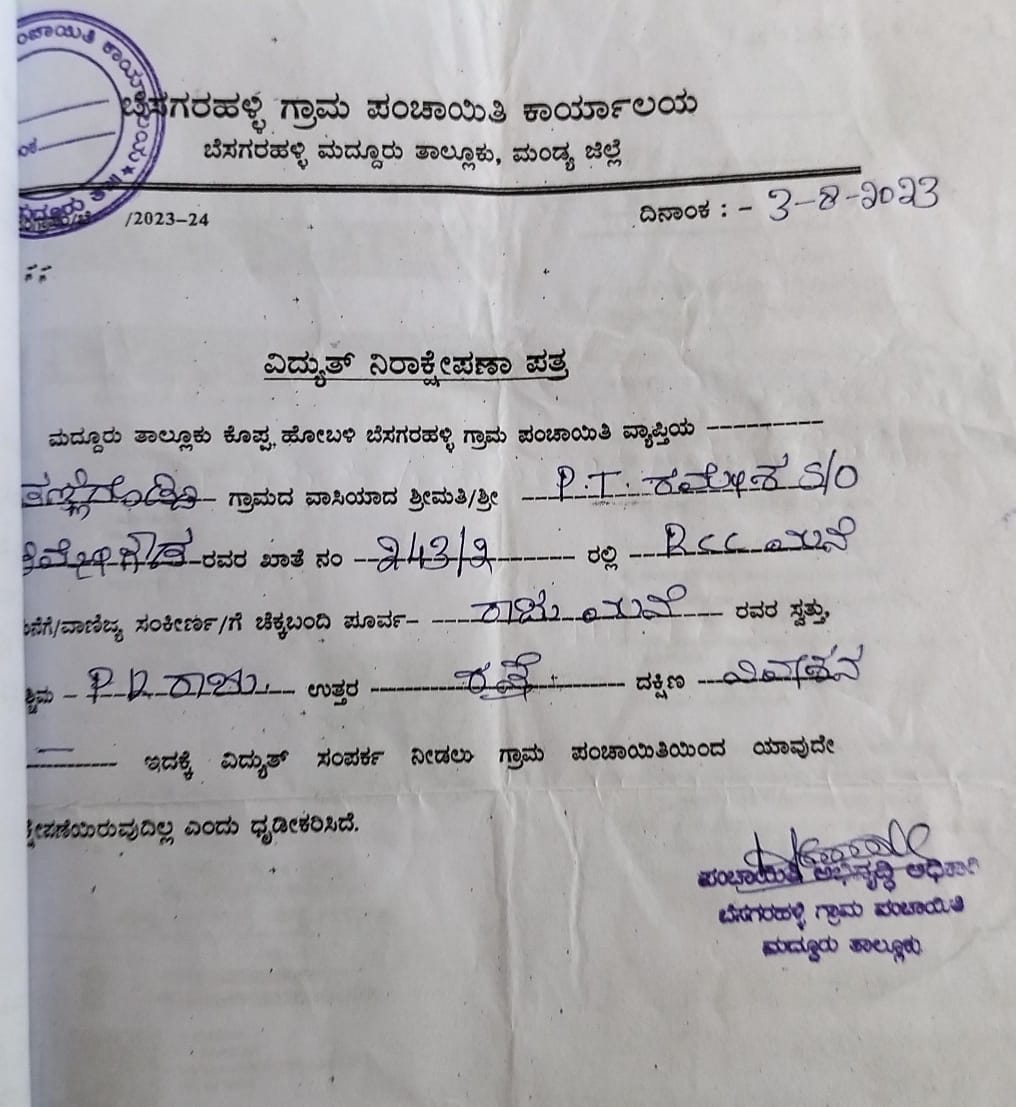 ಪಂಚಾಯಿತಿ ಕಾರ್ಯಾಲಯ
ಬೆಸಗರಹಳ್ಳಿ ಗ್ರಾಮ ಪಂಚಾಯಿತಿ ಕಾರ್ಯಾಲಯ
ಬೆಸಗರಹಳ್ಳಿ ಮದ್ದೂರು ತಾಲ್ಲೂಕು, ಮಂಡ್ಯ ಜಿಲ್ಲೆ
/2023–24 ದಿನಾಂಕ : - 3-8-2023
ವಿದ್ಯುತ್ ನಿರಾಕ್ಷೇಪಣಾ ಪತ್ರ
ಮದ್ದೂರು ತಾಲ್ಲೂಕು ಕೊಪ್ಪ ಹೋಬಳಿ ಬೆಸಗರಹಳ್ಳಿ ಗ್ರಾಮ ಪಂಚಾಯಿತಿ ವ್ಯಾಪ್ತಿಯ
ಗ್ರಾಮದ ವಾಸಿಯಾದ ಶ್ರೀಮತಿ/ಶ್ರೀ P.T. ರಮೇಶ S/O
ರವರ ಖಾತೆ ನಂ 243/2 ರಲ್ಲಿ RCC ಮನೆ
ವಾಣಿಜ್ಯ ಸಂಕೀರ್ಣ/ಗೆ ಚೆಕ್ಕಬಂದಿ ಪೂರ್ವ– ರಾಜು ಮನೆ ರವರ ಸ್ವತ್ತು,
P.D ರಾಜು ಉತ್ತರ ರಸ್ತೆ ದಕ್ಷಿಣ ನಿವೇಶನ
ಇದಕ್ಕೆ ವಿದ್ಯುತ್ ಸಂಪರ್ಕ ನೀಡಲು ಗ್ರಾಮ ಪಂಚಾಯಿತಿಯಿಂದ ಯಾವುದೇ
ಕ್ಷೇಪಣೆಯಿರುವುದಿಲ್ಲ ಎಂದು ಧೃಡೀಕರಿಸಿದೆ.
ಪಂಚಾಯಿತಿ ಅಭಿವೃದ್ಧಿ ಅಧಿಕಾರಿ
ಬೆಸಗರಹಳ್ಳಿ ಗ್ರಾಮ ಪಂಚಾಯಿತಿ
ಮದ್ದೂರು ತಾಲ್ಲೂಕು